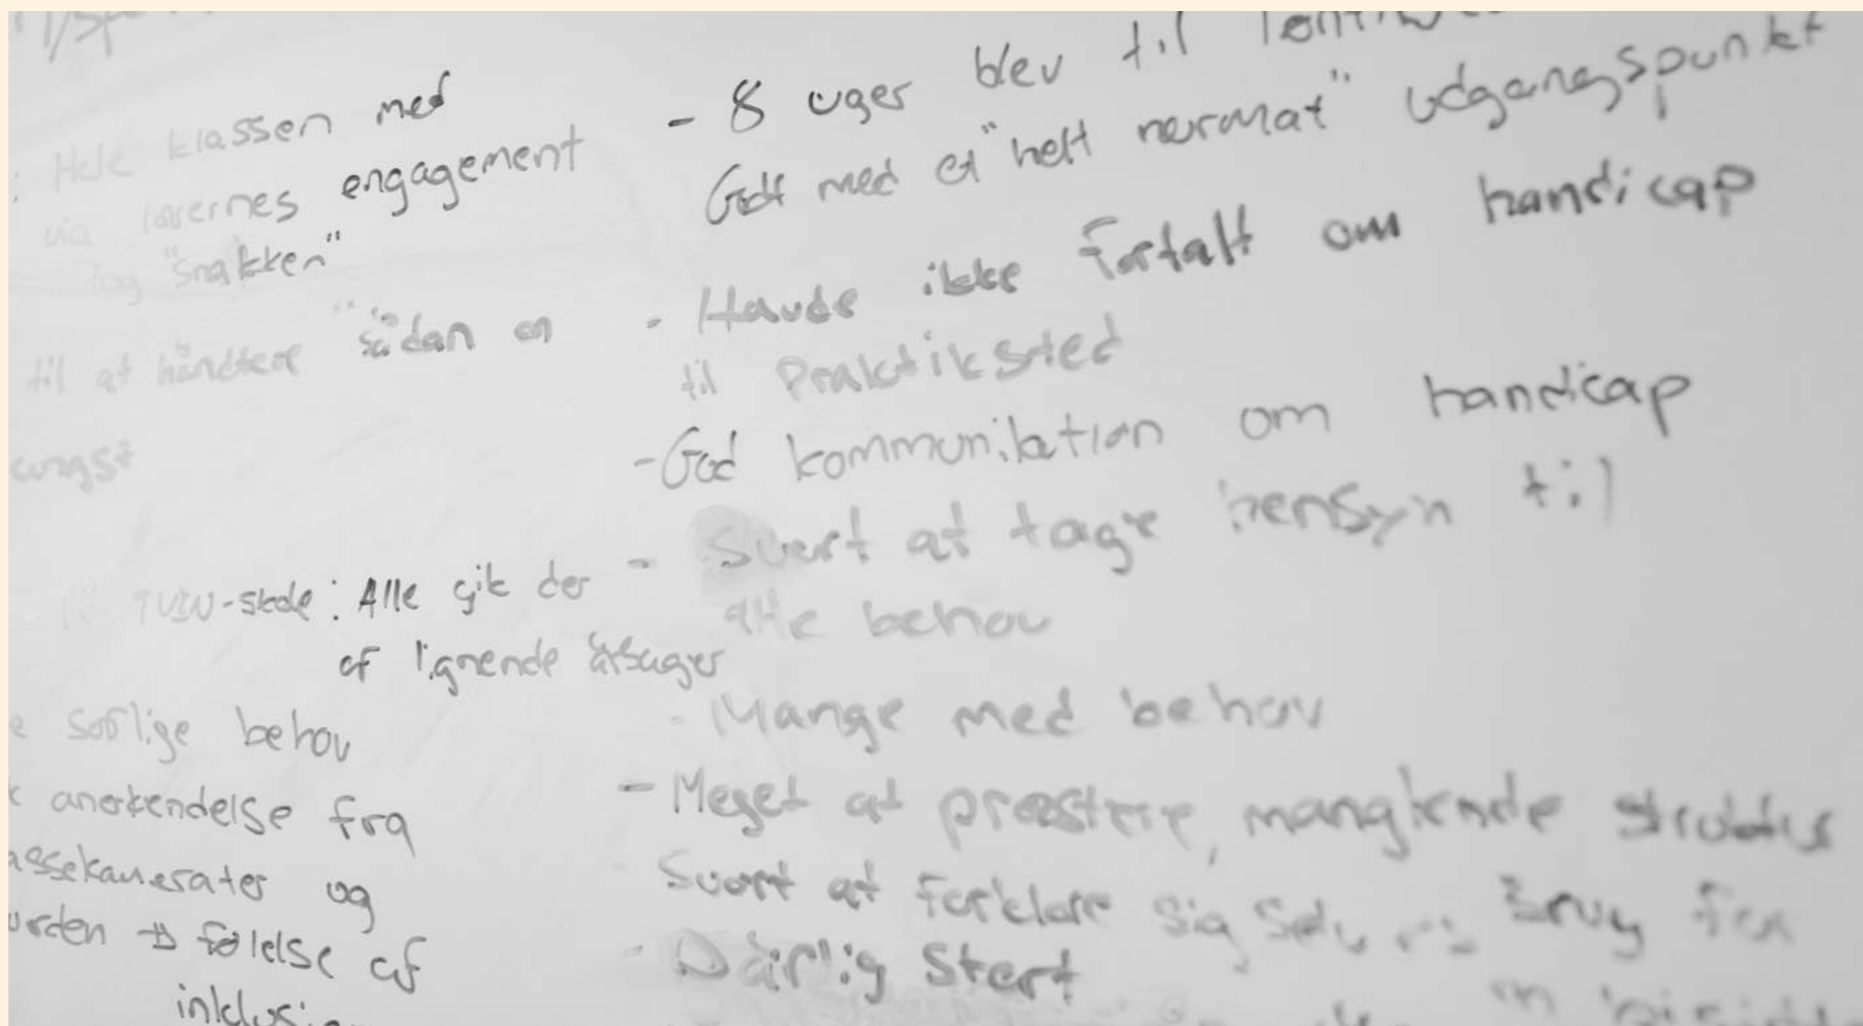 Hele klassen med
via lærernes engagement
tog "snakken"
til at håndtere "sådan en
angst
TUIN-skole: Alle gik der
af lignende årsager
særlige behov
anerkendelse fra
assekamerater og
følelse af
- 8 uger blev til
Godt med et "helt normat" udgangspunkt
- Havde ikke fortalt om handicap
til Praktiksted
- God kommunikation om handicap
- Svært at tage hensyn til
alle behov
- Mange med behov
- Meget at præstere, manglende struktur
Svært at forklare sig selv
- Dårlig start